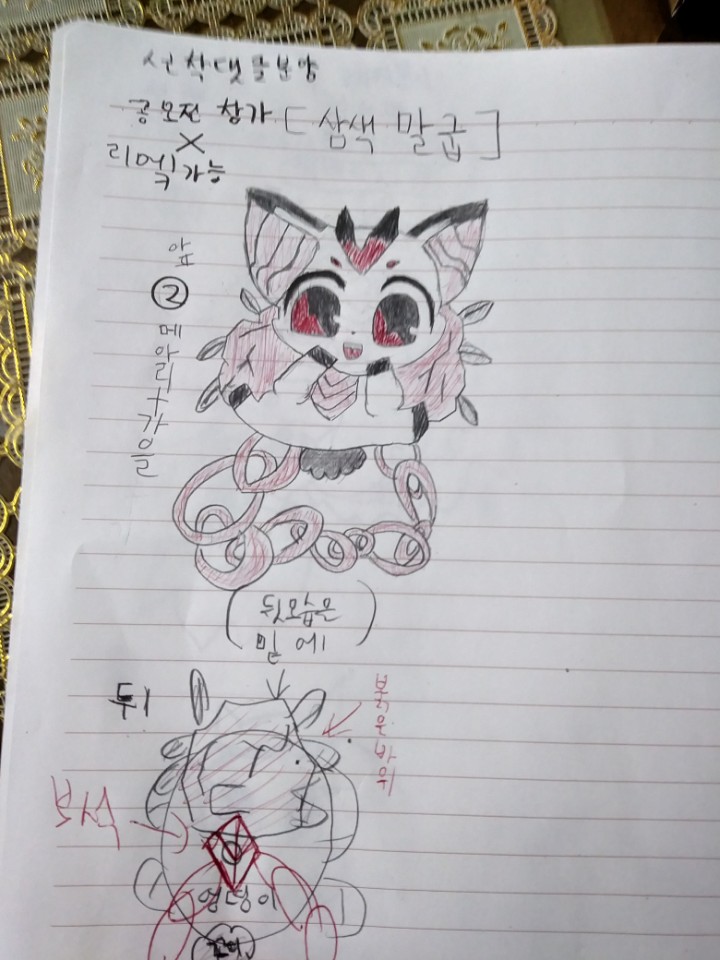 선착댓글분양
공모전 참가 [삼색 말급]
X
리메이크가능
앞
②
메아리+가을
(뒷모습은
밑에)
뒤
보석
엉덩이
꼬리